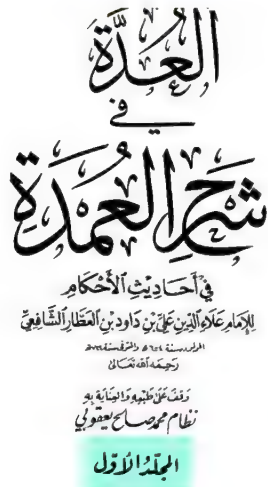 العُدَّة
في
شَرحِ العُمدَةِ
في أَحَاديثِ الأَحْكامِ
لِلإمَامِ عَلَاءِ الدِّينِ عَلِيّ بْن دَاود بْن العَطّارِ الشَّافِعِيِّ
المولود سنة ٦٥٤هـ والمتوفى سنة ٧٢٤هـ
رَحِمَهُ اللّٰه تَعَالى
وَقَفَ عَلى طَبْعِهِ وَالعِنَايَةِ بِهِ
نظام محمد صالح يعقوبي
المجلّدُ الأوّل